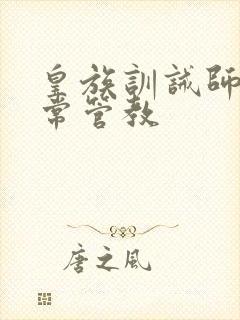 皇族訓誡師
常管教
唐之風